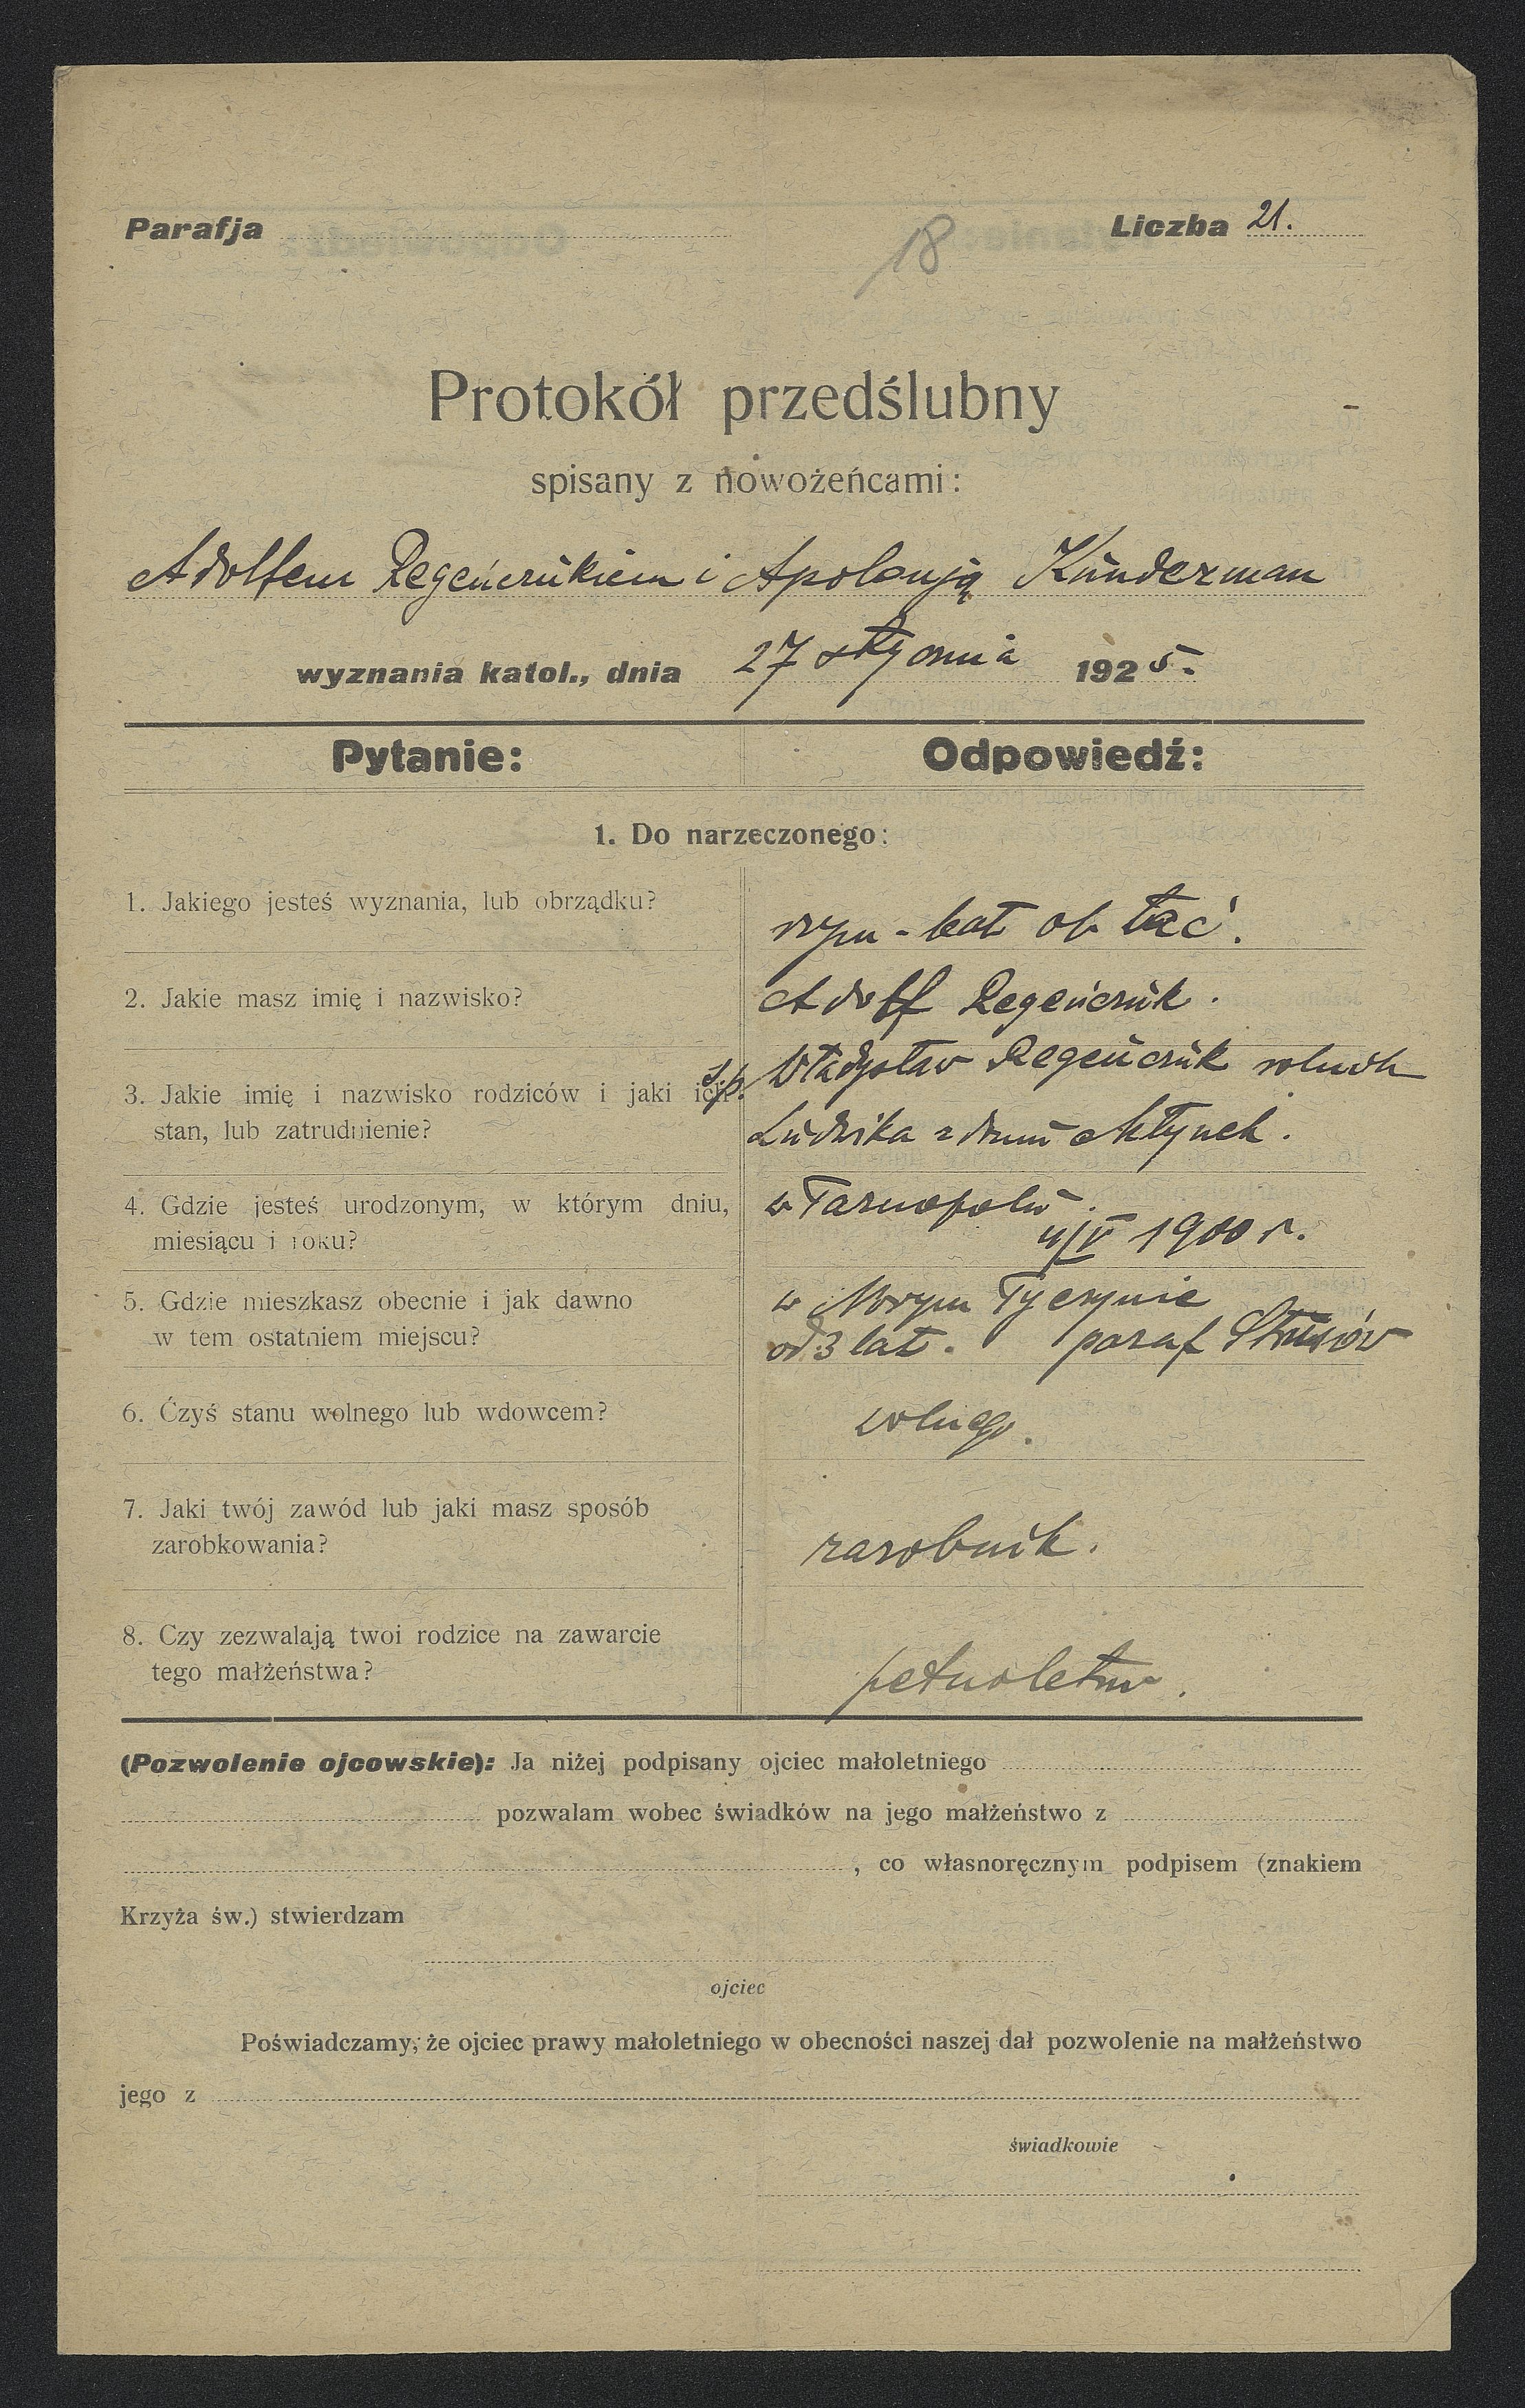 Parafja
Liczba 21.
18
Protokół przedślubny
spisany z nowożeńcami:
Adolfem Regeńczukiem i Apolonją Kunderman
wyznania katol., dnia 27 stycznia 1925.
Pytanie: Odpowiedź:
1. Do narzeczonego:
1. Jakiego jesteś wyznania, lub obrządku?
rzym-kat ob łać.
2. Jakie masz imię i nazwisko?
Adolf Regeńczuk.
3. Jakie imię i nazwisko rodziców i jaki ich
stan, lub zatrudnienie?
ś.p. Władysław Regeńczuk rolnik
Ludwika z domu Młynek.
4. Gdzie jesteś urodzonym, w którym dniu,
miesiącu i roku?
w Tarnopolu.
4/V 1900 r.
5. Gdzie mieszkasz obecnie i jak dawno
w tem ostatniem miejscu?
w Nowym Tyczynie
od 3 lat. paraf Strusów
6. Czyś stanu wolnego lub wdowcem?
wolnego.
7. Jaki twój zawód lub jaki masz sposób
zarobkowania?
zarobnik.
8. Czy zezwalają twoi rodzice na zawarcie
tego małżeństwa?
pełnoletni.
(Pozwolenie ojcowskie): Ja niżej podpisany ojciec małoletniego
pozwalam wobec świadków na jego małżeństwo z
, co własnoręcznym podpisem (znakiem
Krzyża św.) stwierdzam
ojciec
Poświadczamy, że ojciec prawy małoletniego w obecności naszej dał pozwolenie na małżeństwo
jego z
świadkowie